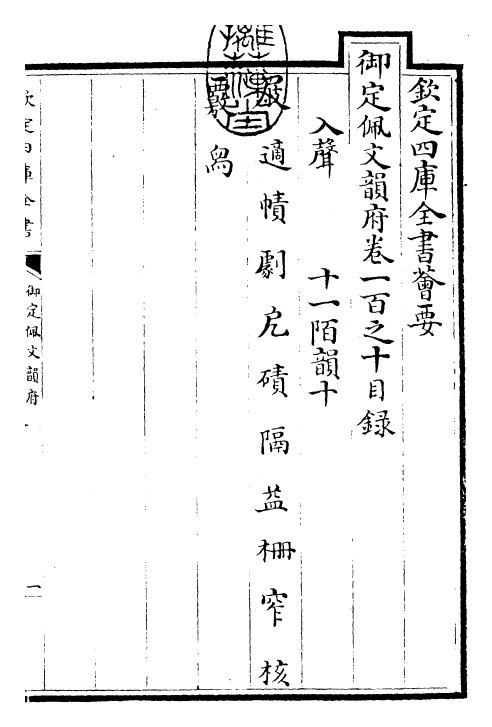 欽定四庫全書薈要
御定佩文韻府卷一百之十目錄
入聲 十一陌韻十
適 幘 劇 戹 磧 隔 益 柵 窄 核
覈 舄
欽定四庫全書
御定佩文韻府
一